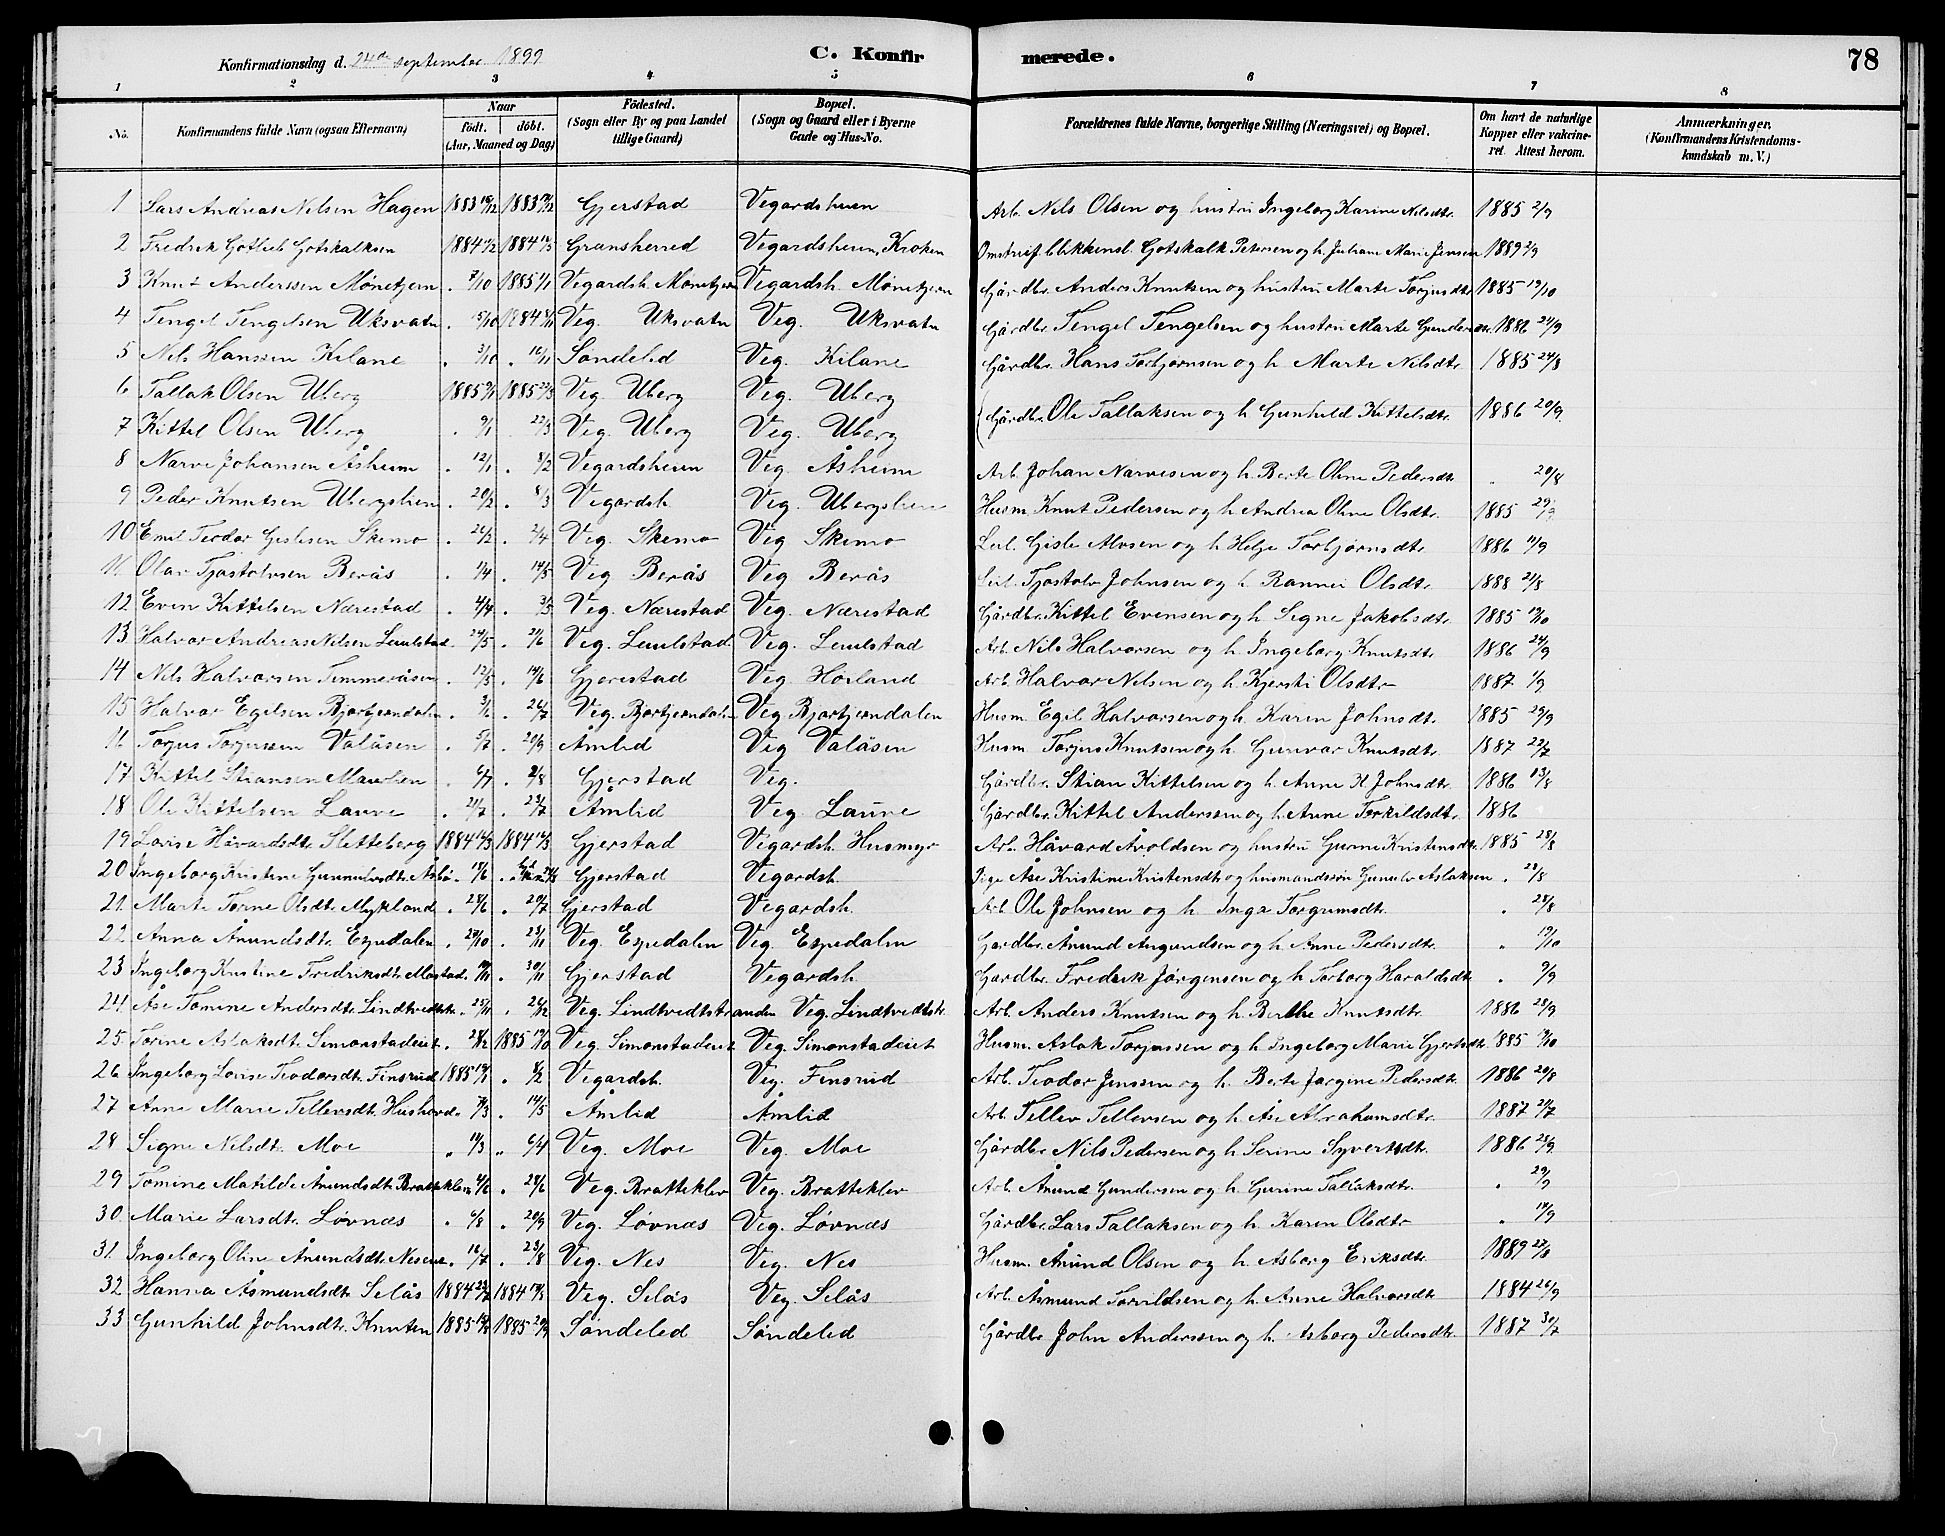 Konfirmationsdag d. 24de september 1899 C. Konfirmerede. 78
1 2 3 4 5 6 7 8
No. Konfirmandens fulde Navn (ogsaa Efternavn) Naar født. døbt. (Aar, Maaned og Dag) Fødested. (Sogn eller By og paa Landet tillige Gaard) Bopæl. (Sogn og Gaard eller i Byerne Gade og Hus-No. Forældrenes fulde Navne, borgerlige Stilling (Næringsvei) og Bopæl. Om havt de naturlige Kopper eller vakcineret. Attest herom. Anmærkninger, (Konfirmandens Kristendomskundskab m. V.)
1 Lars Andreas Nilsen Hagen 1883 1883 Gjerstad Vegardsheien Arb. Nils Olsen og hustru Ingeborg Karine Nilsdtr. 1885 2/9
2 Fredrik Gotlieb Gotskalksen 1884 1884 Gransherred Vegardsheien, Kroken Omstreif. blikkensl. Gotskalk Petersen og h. Juliane Marie Jensen 1889 2/9
3 Knut Anderssen Mønetjern . 7/10 1885 1/1 Vegardsh. Mønetjern Vegardsh. Mønetjern Gårdbr. Anders Knutsen og hustru Marte Torjusdtr. 1885 19/10
4 Tengel Tengelsen Uksvatn . 5/10 1884 Veg. Uksvatn Veg. Uksvatn Gårdbr. Tengel Tengelsen og hustru Marte 1886 24/9
5 Nils Hanssen Kilane . 3/10 . 16/11 Søndeled Veg. Kilane Gårdbr. Hans Torbjørnsen og h. Marte Nilsdtr. 1885 24/8
6 Tallak Olsen Uberg 1885 9/1 1885 22/3 Veg. Uberg Veg. Uberg
7 Kittel Olsen Uberg . 9/1 . 22/3 Veg. Uberg Veg. Uberg Gårdbr. Ole Tallaksen og h. Gunhild Kittelsdtr. 1886 20/9
8 Narve Johansen Åsheim . 12/1 . 8/2 Vegardsheien Veg. Åsheim Arb. Johan Narvesen og h. Berte Oline Pedersdtr. . 20/8
9 Peder Knutsen Ubergsheien . 20/2 . 8/3 Vegardsh. Veg. Ubergsheien Husm. Knut Pedersen og h. Andrea Oline Olsdtr. 1885
10 Emil Teodor Gislesen Skemo . 26/2 . 2/4 Veg. Skemo Veg Skemo Leil. Gisle Alvsen og h. Helge Torbjørnsdtr. 1886 11/9
11. Olav Tjostolvsen Berås . 1/4 . 14/5 Veg Berås Veg Berås Leil. Tjostolv Johnsen og h. Rannei Olsdtr. 1888 21/8
12 Even Kittelsen Nærestad . 4/4 . 3/5 Veg. Nærestad Veg. Nærestad Gårdbr. Kittel Evensen og h. Signe Jakobsdtr. 1885
13 Halvor Andreas Nilsen Lemlstad . 24/5 . 21/6 Veg. Lemlstad. Veg. Lemlstad Arb. Nils Halvorsen og h. Ingeborg Knutsdtr. 1886 24/9
14 Nils Halvorsen Timmeråsen . 12/5 . 14/6 Gjerestad Veg Hørland Arb. Halvor Nilsen og h. Kjersti Olsdtr 1887 1/9
15 Halvor Egilsen Bjortjerndalen . 3/6 . 26/7 Veg. Bjortjerndalen Veg Bjortjerndalen Husm. Egil Halvorsen og h. Karen Johnsdtr. 1885 29/9
16 Torjus Torjussen Valåsen . 5/7 . 20/9 Åmlid Veg Valåsen Husm. Torjus Knutsen og h. Gunvor Knutsdtr. 1887 22/7
17 Kittel Stiansen . 6/7 . 2/8 Gjerstad Veg. Gårdbr. Stian Kittelsen og h. Anne K Johnsdtr. 1886 13/8
18 Ole Kittelsen Lauve . 21/7 . 23/7 Åmlid Veg. Lauve Gårdbr. Kittel Anderssen og h. Anne Torkildsdtr. 1886
19 Lovise Håvardsdtr. Sletteberg 1884 1884 Gjerstad Vegardsh. Husmyr Arb. Håvard Avoldsen og hustru Gunne Kristensdtr. 1885 28/8
20 Ingeborg Kristine Gunnulvsdtr. Åsbø . 18/6 . Gjerstad Vegardsh. Pige Åse Kristine Kristensdtr og husmandssøn Gunulv Aslaksen . 28/8
21. Marte Torine Olsdtr. Mykland . 28/6 . 20/7 Gjerstad Vegardsh. Arb. Ole Johnsen og h Inga Torgrimsdtr. . 28/8
22 Anna Ånundsdtr. Espedalen . 29/10 . 23/11 Veg. Espedalen Veg. Espedalen Gardbr. Ånund Angundsen og h. Anne Pedersdtr. " 19/10
23 Ingeborg Kristine Fredriksdtr. Mostad . 30/11 Gjerstad Vegardsh Gardbr. Fredrik Jørgensen og h. Torborg Haraldsdtr . 9/9
24. Åse Tomine Andersdtr. Lindtvedtstr. . 25/11 . 26/12 Veg. Lindtvedtstranden Veg. Lindtvedtstr. Arb. Anders Knutsen og h. Berthe Knutsdtr. 1886 28/9
25. Torine Aslaksdtr. Simonstadeiet . 28/12 1885 Veg. Simonstadeiet Veg. Simonstadeiet Husm. Aslak Torjussen og h Ingeborg Marie Gjertsdtr. 1885
26 Ingeborg Lovise Teodorsdtr. Finsrud 1885 . 8/2 Vegardsh. Veg. Finsrud Arb. Teodor Jenssen og h. Berte Jørgine Pedersdtr. 1886 20/8
27 Anne Marie Tellevsdtr. Hushovd . . 14/5 Åmlid Åmlid Arb. Tellev Tellevsen og h. Åse Abrahamsdtr. 1887 21/7
28 Signe Nilsdtr. Moe " 19/3 " 6/4 Veg. Moe Veg. Moe Gårdbr. Nils Pedersen og h Serine Syvertsdtr. 1886 25/9
29 Tomine Matilde Ånundsdtr. Bratteklev . 28/6 Veg. Bratteklev Veg. Bratteklev Arb. Ånund Gundersen og h. Gurine Tallaksdtr. . 29/9
30. Marie Larsdtr. Løvnæs . 6/8 . 20/9 Veg. Løvnæs Veg. Løvnæs Gårdbr. Lars Tallaksen og h. Karen Olsdtr . 19/9
31. Ingeborg Oline Ånundsdtr. Nesene . 16/7 . 23/8 Veg. Nes Veg. Nes Husm. Ånund Olsen og h. Asborg Eriksdtr. 1889 22/8
32 Hansea Åsmundsdtr Selås 1884 1884 Veg. Selås Veg. Selås Arb. Åsmund Torvildsen og h. Anne Halvorsdtr. 1884 26/9
33 Gunhild Johnsdtr. Knuten 1885 1885 20/9 Søndeled Søndeled Gårdbr John Anderssen og h. Asborg Pedersdtr. 1887 30/7